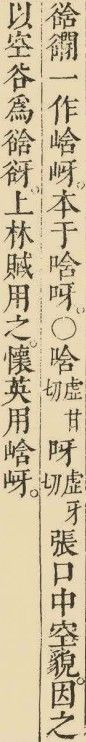 谽一作㟏岈。本于唅呀。○唅虛甘切呀虛牙切張口中空貌。因之
以空谷爲谽谺。上林賦用之。懷英用㟏岈。